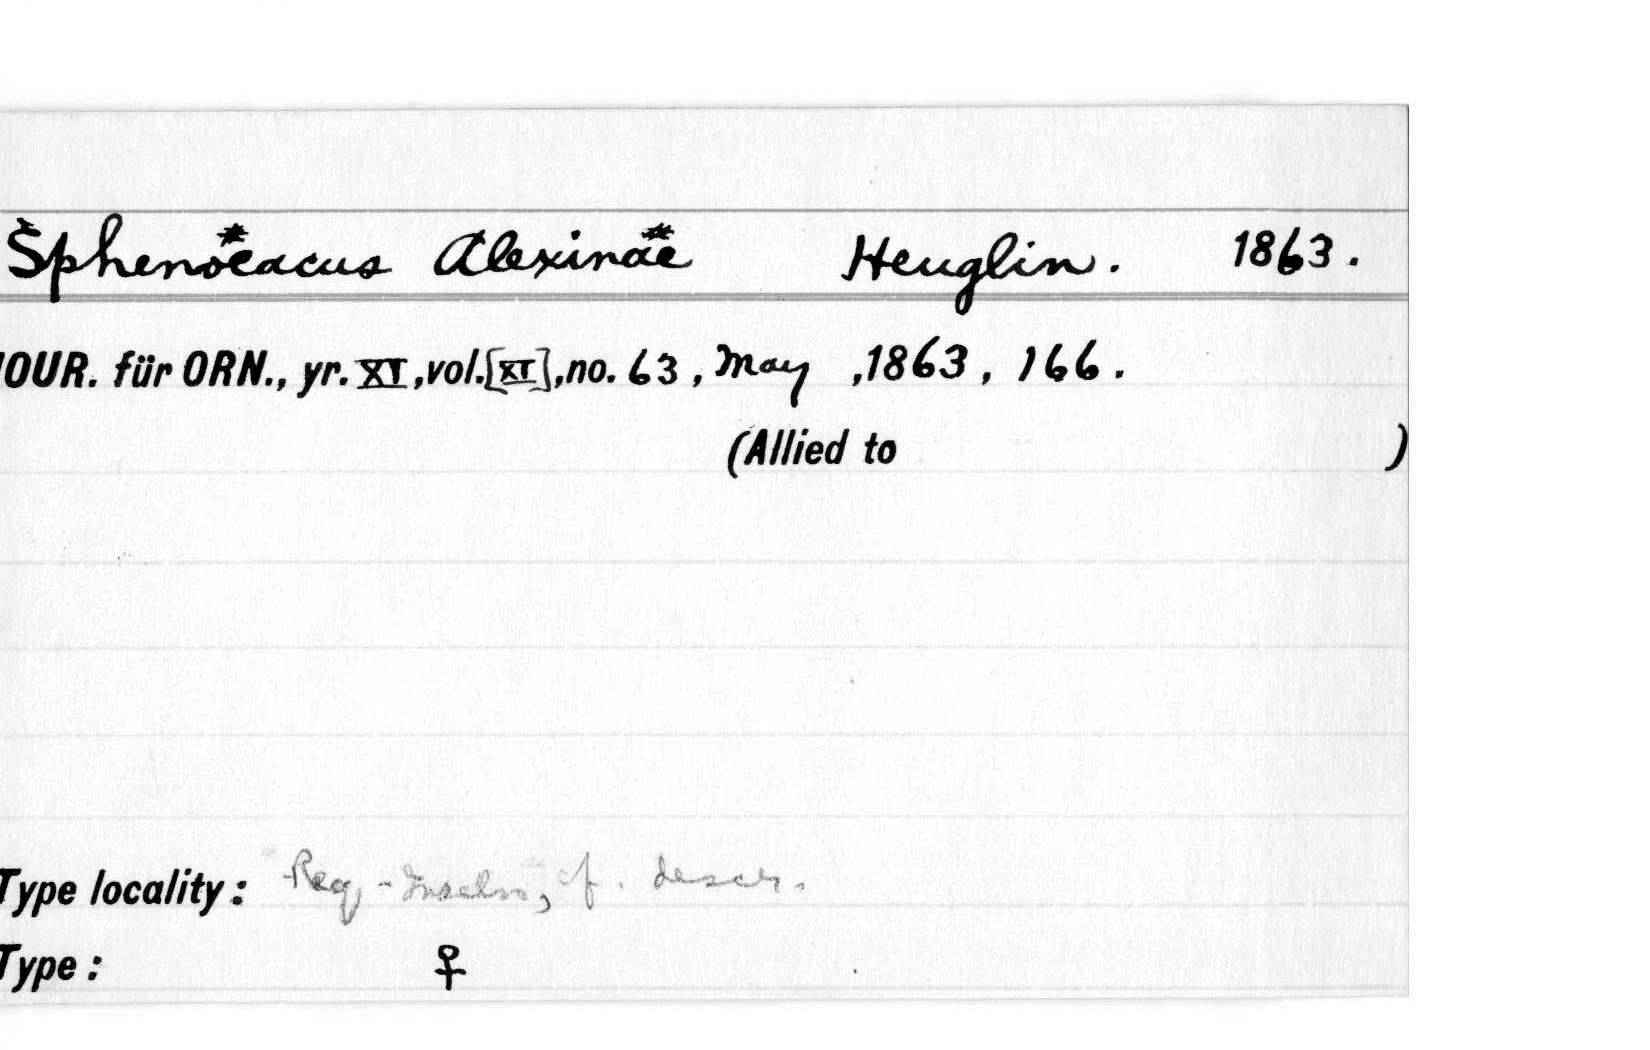 Sphenoeacus Alexinae Heuglin. 1863.
JOUR. für ORN., yr. XI, vol. [XI], no. 63, May, 1863, 166.
(Allied to )
Type locality: Req-Inseln, cf. descr.
Type: ♀